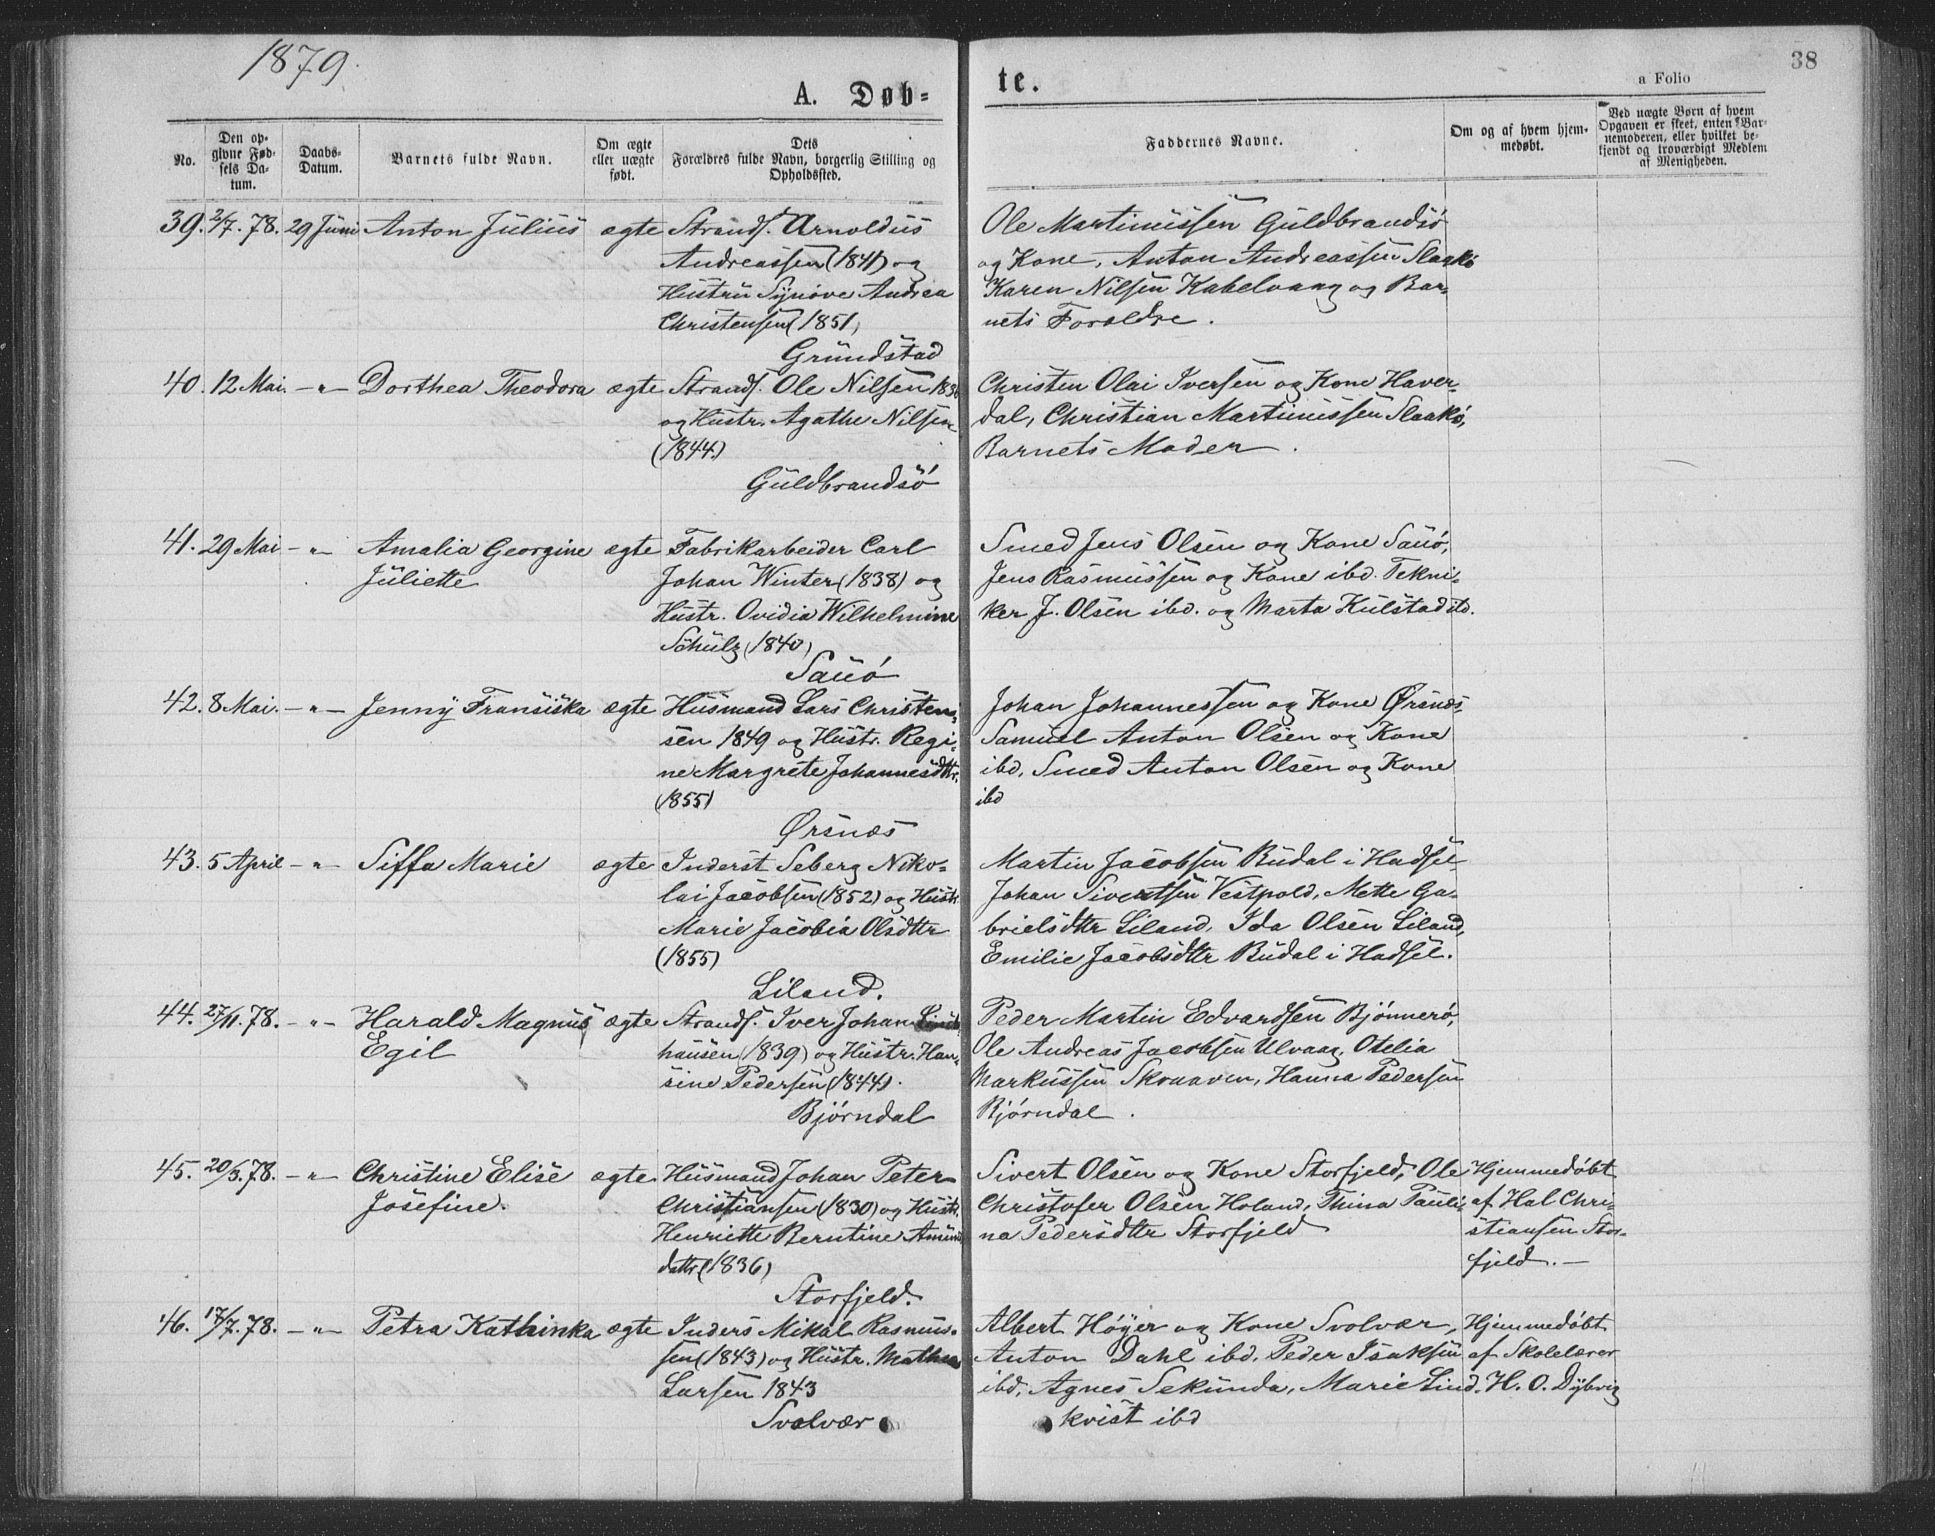 1879.
38
A. Døb=
te.
a Folio
No.
Den op-
givne Fød-
sels Da-
tum.
Daabs-
Datum.
Barnets fulde Navn.
Om ægte
eller uægte
født.
Dets
Forældres fulde Navn, borgerlig Stilling og
Opholdssted.
Faddernes Navne.
Om og af hvem hjem-
medøbt.
Ved uægte Børn af hvem
Opgaven er skeet, enten Bar-
nemoderen, eller hvilket be-
kjendt og troværdigt Medlem
af Menigheden.
39. 2/7. 78. 29 Juni Anton Julius ægte Strands. Arnoldus
Andreassen (1841) og
Hustru Synøve Andrea
Christensen (1851)
Grundstad
Ole Martinussen Guldbrandsø
og Kone, Anton Andreassen Slaakø
Karen Nilsen Kabelvaag og Bar-
nets Foreldre.
40. 12 Mai. -"- Dorthea Theodora ægte Strands. Ole Nilsen
og Hustr. Agathe Nilsen
(1844)
Guldbrandsø
Christen Olai Iversen og Kone Haver-
dal, Christian Martinussen Slaakø,
Barnets Moder.
41. 29 Mai -"- Amalia Georgine ægte Fabrikarbeider Carl
Juliette
Johan Winter (1838) og
Hustr. Ovidia Wilhelmine
Schulz (1840)
Sauø
Smed Jens Olsen og Kone Sauø,
Jens Rasmussen og Kone ibd. Tekni-
ker J. Olsen ibd. og Marta Kulstad ibd.
42. 8 Mai. -"- Jenny Fransiska ægte Husmand Lars Christen-
sen 1849 og Hustr. Regi-
ne Margrete Johannesdttr.
(1855)
Ørsnæs
Johan Johannessen og Kone Ørsnæs
Samuel Anton Olsen og Kone
ibd, Smed Anton Olsen og Kone
ibd
43. 5 April -"- Siffa Marie ægte Inderst Seberg Niko-
lai Jacobsen (1852) og Hustr.
Marie Jacobia Olsdttr
(1855)
Liland.
Martin Jacobsen Budal i Hadsel
Johan Sivertsen Vestpold, Mette Ga-
brielsdttr Liland, Ida Olsen Liland,
Emilie Jacobsdttr Budal i Hadsel.
44. 27/11. 78. -"- Harald Magnus ægte Strands. Iver Johan
Egil
hausen (1839) og Hustr. Han-
sine Pedersen (1844).
Bjørndal
Peder Martin Edvardsen Bjønnerø,
Ole Andreas Jacobsen Ulvaag, Otelia
Markussen Skraaven, Hanna Pedersen
Bjørndal.
45. 20/3. 78. -"- Christine Elise ægte Husmand Johan Peter
Josefine.
Christiansen (1830) og Hustr.
Henriette Berntine Amund
dattr (1836)
Storfjeld.
Sivert Olsen og Kone Storfjeld, Ole
Christofer Olsen Holand, Thina Pauli-
na Pedersdttr Storfjeld
Hjemmedøbt
af Hal. Chri-
stiansen Stor-
fjeld.
46. 17/7. 78. -"- Petra Kathinka ægte Inders Mikal Rasmus-
sen (1843) og Hustr. Mathea
Larsen 1843
Svolvær
Albert Høyer og Kone Svolvær,
Anton Dahl ibd. Peder Isaksen
ibd, Agnes Sekunda, Marie Lind-
kvist ibd
Hjemmedøbt
af Skolelærer
H. O. Dybvig